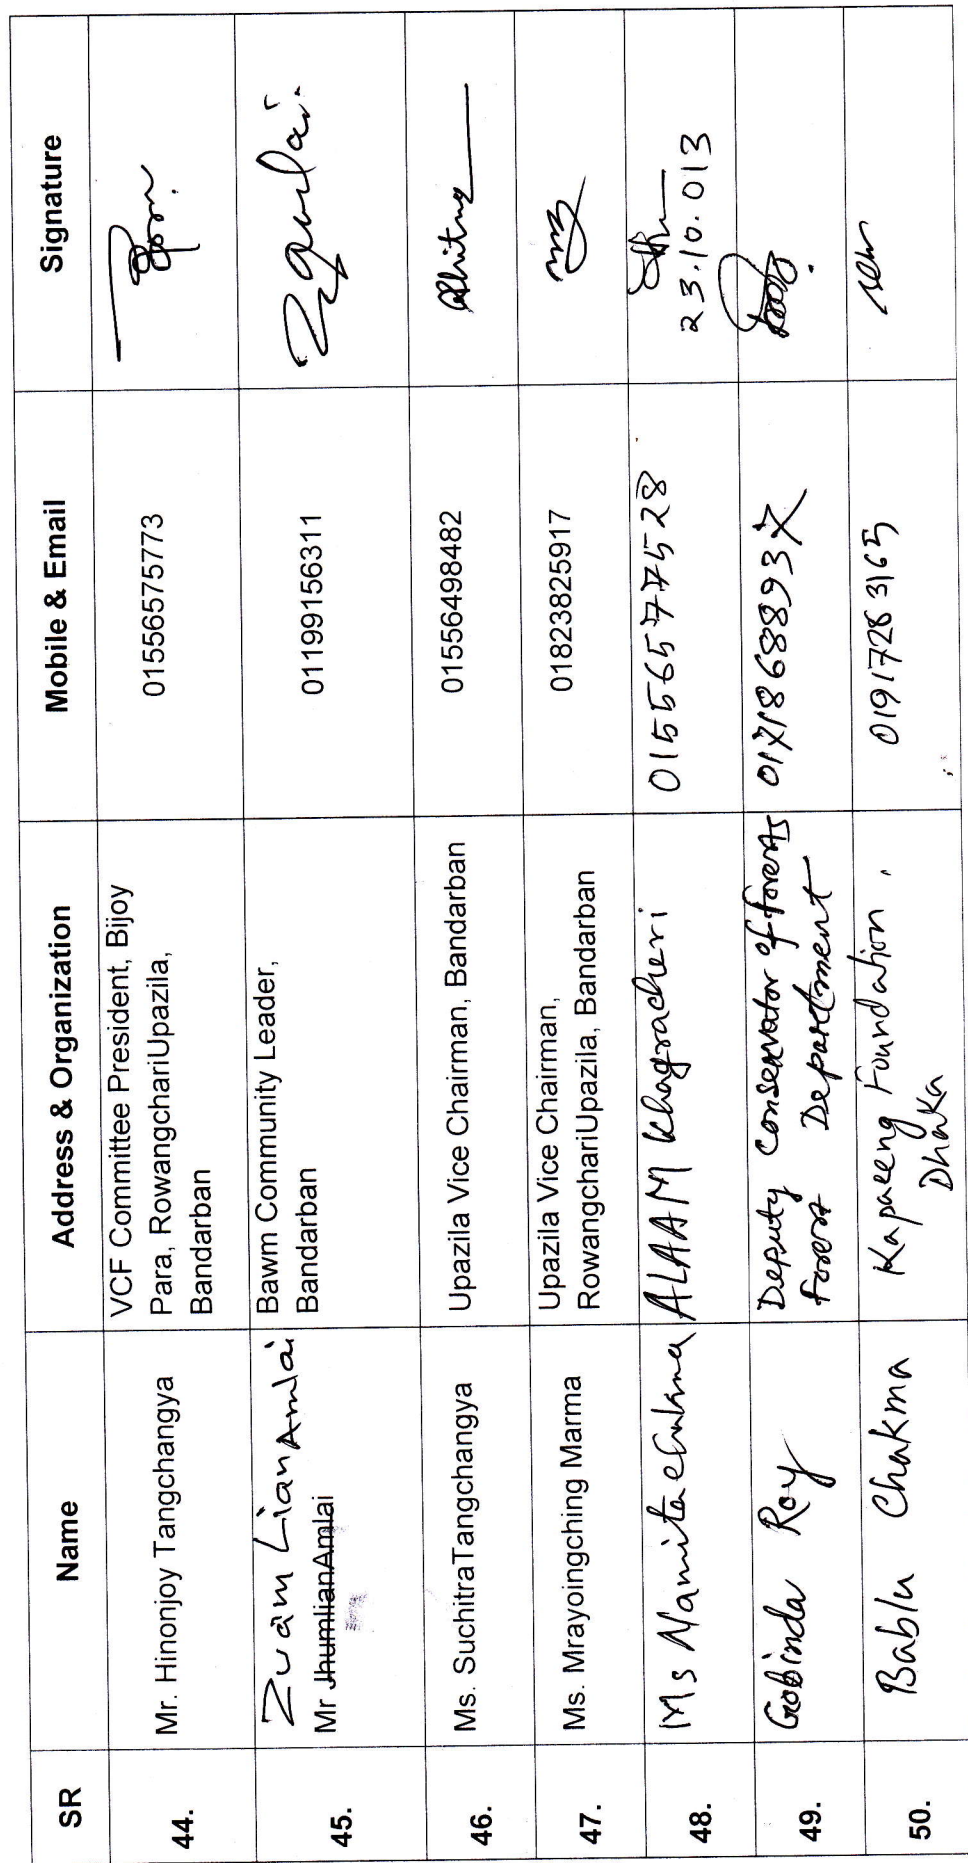 SR Name Address & Organization Mobile & Email Signature
44. Mr. Hinonjoy Tangchangya VCF Committee President, Bijoy 01556575773
Para, RowangchariUpazila,
Bandarban
Zuam Lian Amlai
45. Mr JhumlianAmlai Bawm Community Leader, 01199156311
Bandarban
46. Ms. SuchitraTangchangya Upazila Vice Chairman, Bandarban 01556498482
47. Ms. Mrayoingching Marma Upazila Vice Chairman, 01823825917
RowangchariUpazila, Bandarban
48. Ms Namita Chakma ALAAM Khagracheri 01556577528
23.10.013
49. Gobinda Roy Deputy Conservator of forests 01718688937
Forest Department
50. Bablu Chakma Kapaeeng Foundation, 01917283165
Dhaka